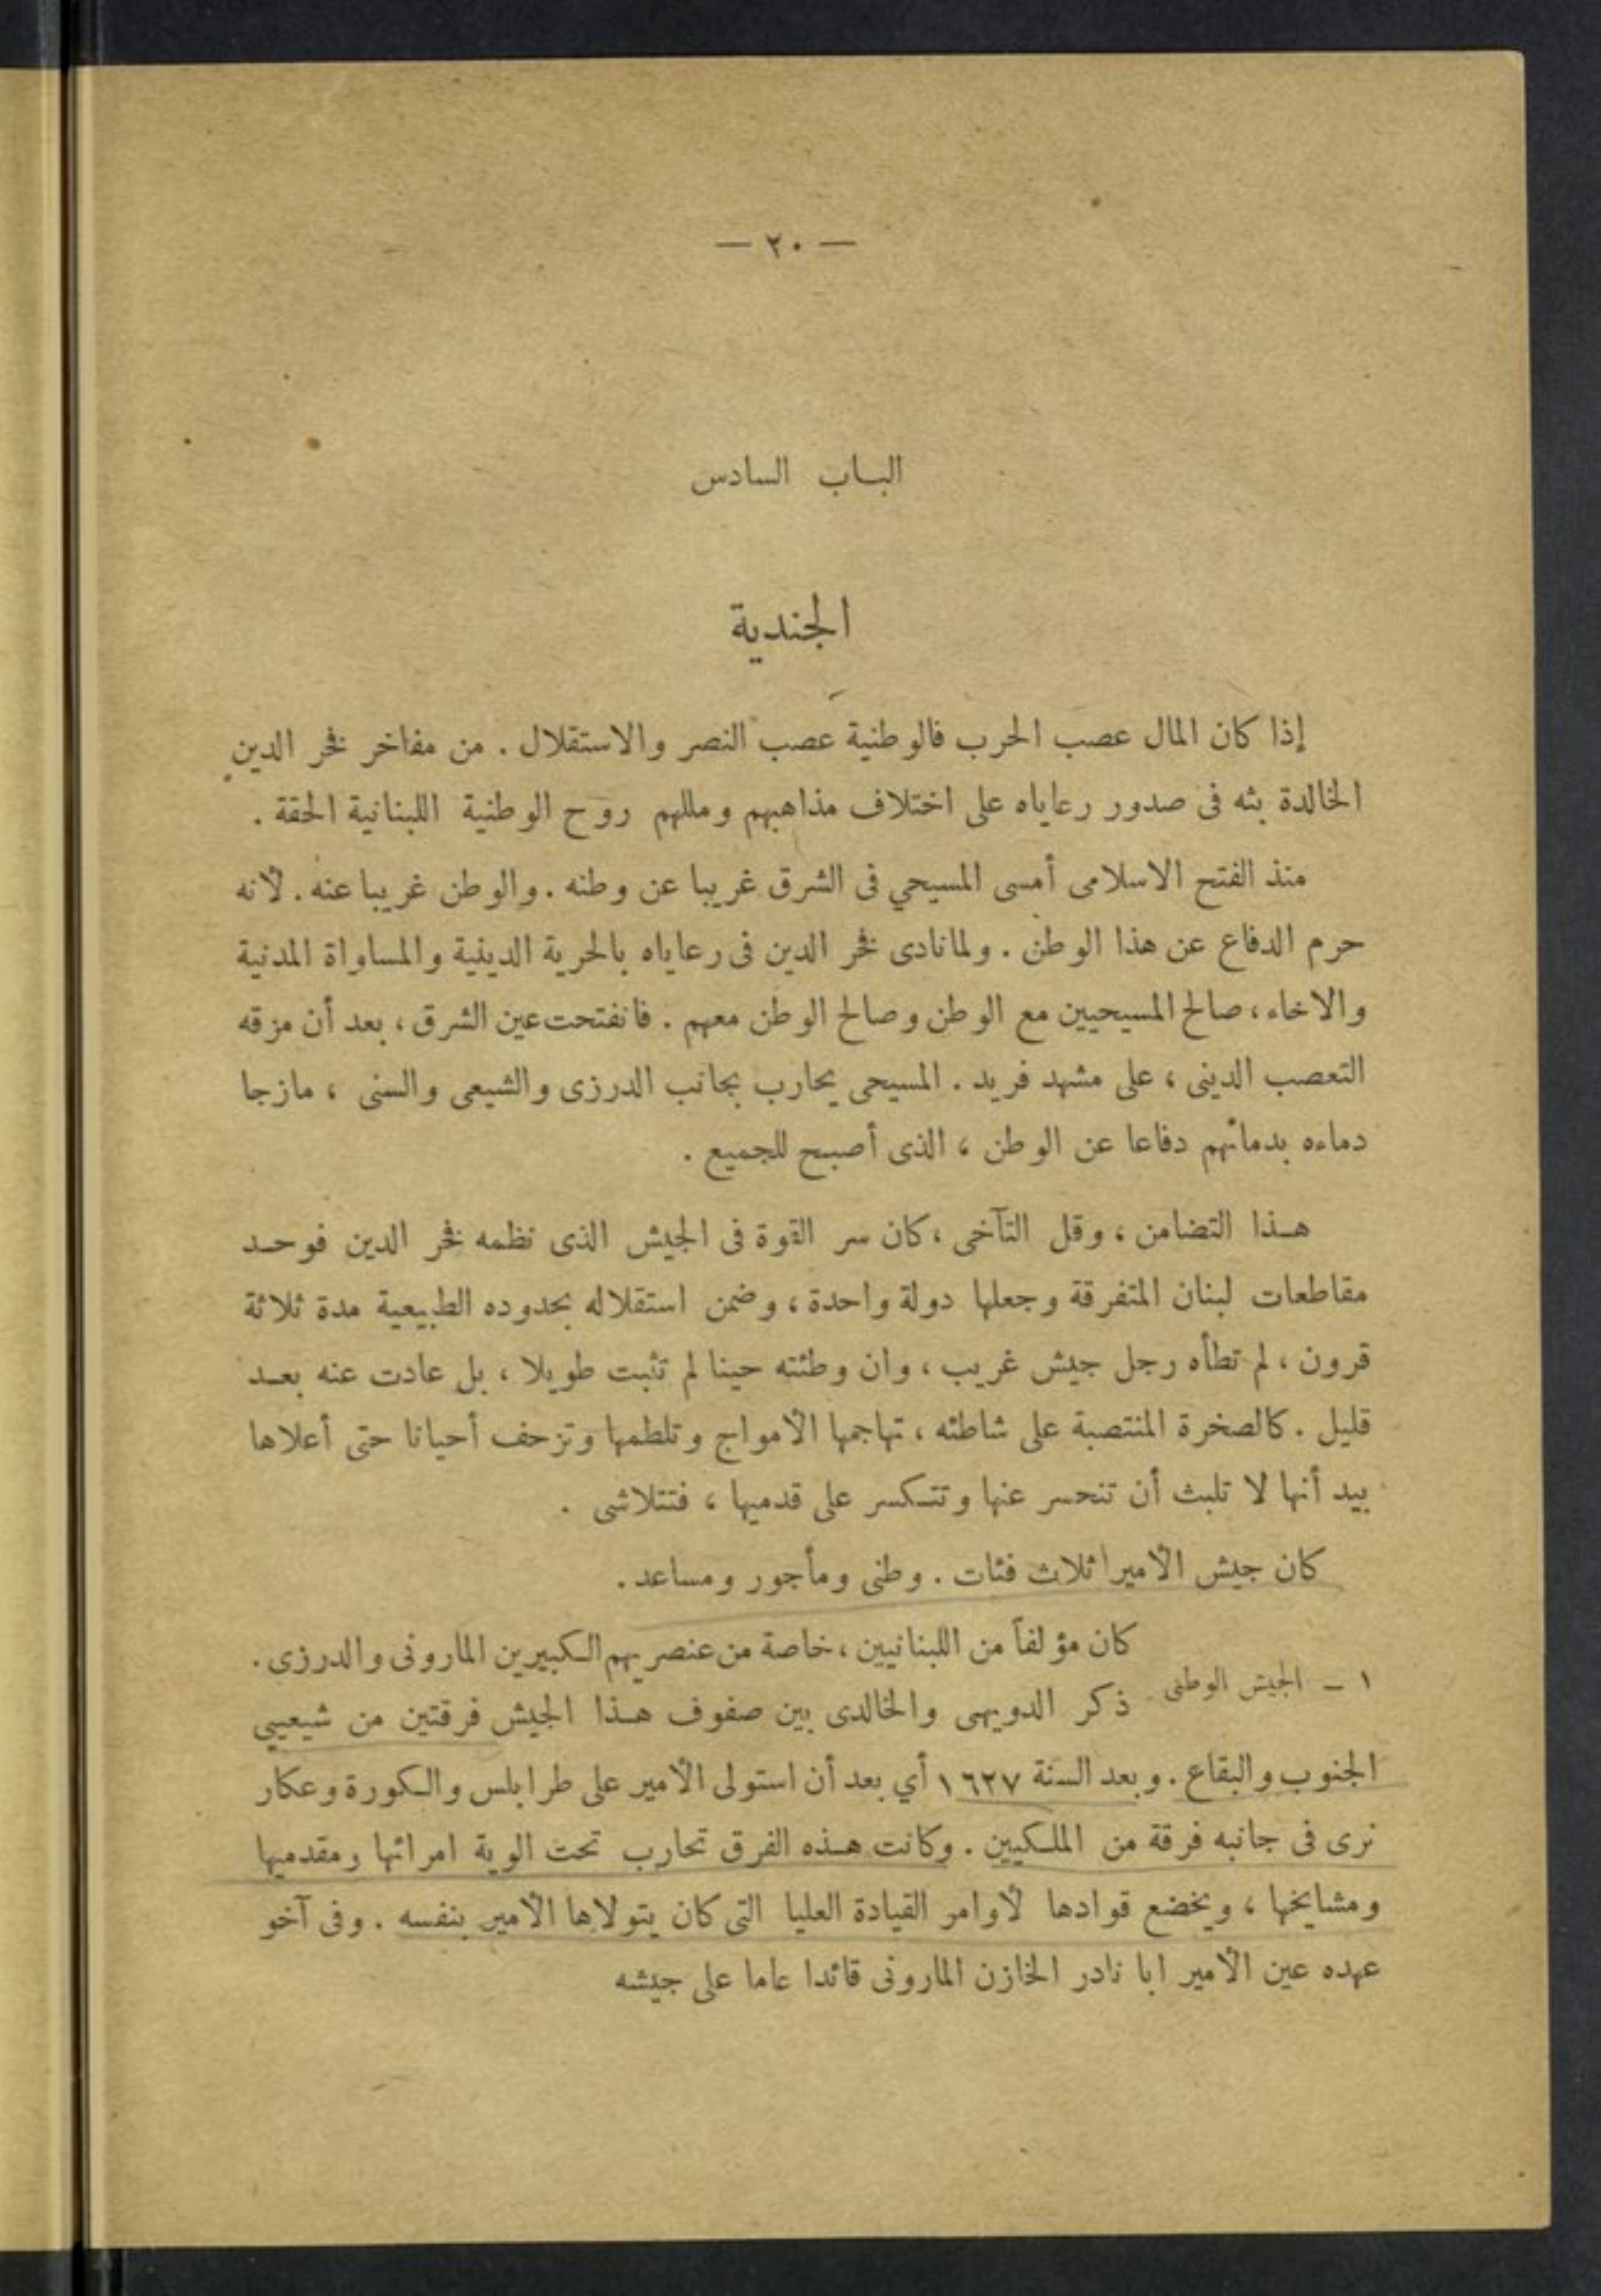 — ٢٠ —
الباب السادس
الجندية
إذا كان المال عصب الحرب فالوطنية عصب النصر والاستقلال . من مفاخر فخر الدين
الخالدة بثه فى صدور رعاياه على اختلاف مذاهبهم ومللهم روح الوطنية اللبنانية الحقة .
منذ الفتح الاسلامى أمسى المسيحي فى الشرق غريبا عن وطنه . والوطن غريبا عنه . لأنه
حرم الدفاع عن هذا الوطن . ولما نادى فخر الدين فى رعاياه بالحرية الدينية والمساواة المدنية
والاخاء ، صالح المسيحيين مع الوطن وصالح الوطن معهم . فانفتحت عين الشرق ، بعد أن مزقه
التعصب الدينى ، على مشهد فريد . المسيحى يحارب بجانب الدرزى والشيعى والسنى ، مازجا
دماءه بدمائهم دفاعا عن الوطن ، الذى أصبح للجميع .
هذا التضامن ، وقل التآخى ، كان سر القوة فى الجيش الذى نظمه فخر الدين فوحد
مقاطعات لبنان المتفرقة وجعلها دولة واحدة ، وضمن استقلاله بحدوده الطبيعية مدة ثلاثة
قرون ، لم تطأه رجل جيش غريب ، وان وطئته حينا لم تثبت طويلا ، بل عادت عنه بعد
قليل . كالصخرة المنتصبة على شاطئه ، تهاجمها الأمواج وتلطمها وتزحف أحيانا حتى أعلاها
بيد أنها لا تلبث أن تنحسر عنها وتتكسر على قدميها ، فتتلاشى .
كان جيش الأمير ثلاث فئات . وطنى ومأجور ومساعد .
كان مؤلفاً من اللبنانيين ، خاصة من عنصريهم الكبيرين المارونى والدرزى .
١ – الجيش الوطنى
ذكر الدويهى والخالدى بين صفوف هذا الجيش فرقتين من شيعيي
الجنوب والبقاع . وبعد السنة ١٦٢٧ أي بعد أن استولى الأمير على طرابلس والكورة وعكار
نرى فى جانبه فرقة من الملكيين . وكانت هذه الفرق تحارب تحت الوية امرائها ومقدميها
ومشايخها ، ويخضع قوادها لأوامر القيادة العليا التى كان يتولاها الأمير بنفسه . وفى آخو
عهده عين الأمير ابا نادر الخازن المارونى قائدا عاما على جيشه